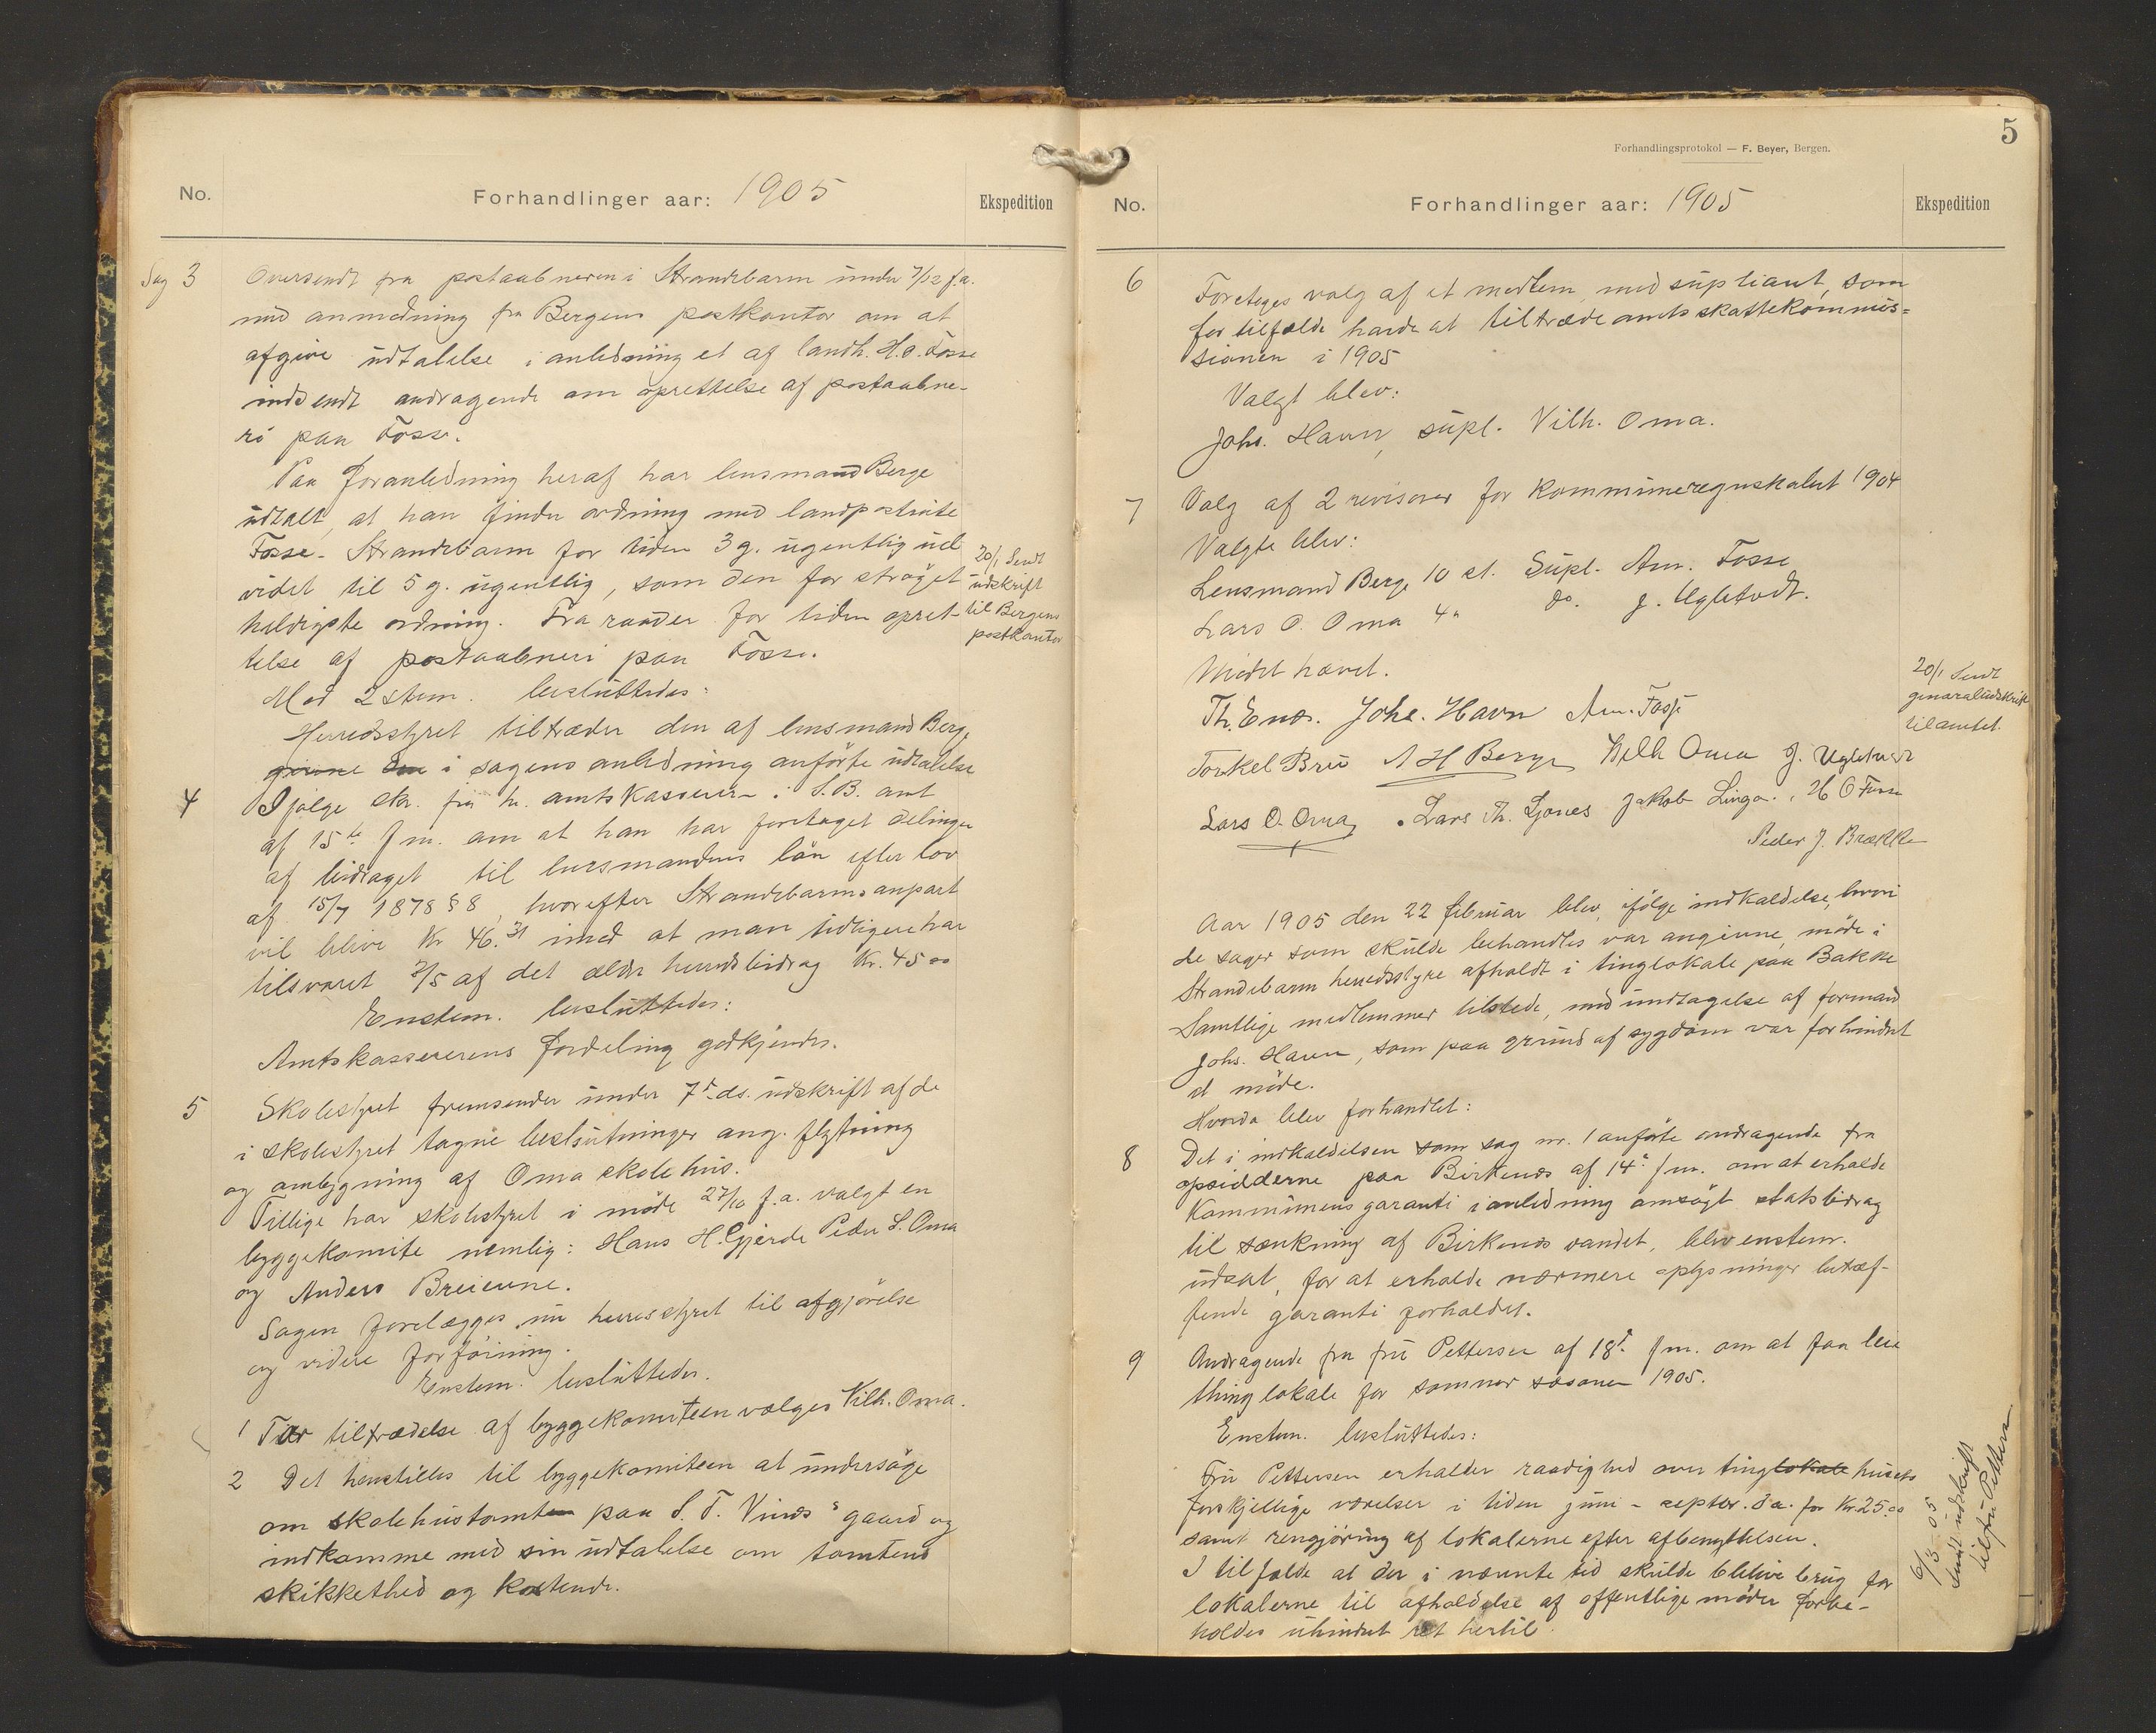 No.
Forhandlinger aar: 1905
Ekspedition
Sag 3
Oversendt fra postaabneren i Strandebarm under 7/12 f.a.
med anmodning fra Bergens postkontor om at
afgive udtalelse i anledning et af landh. H. O. Fosse
indsendt andragende om oprettelse af postaabne-
ri paa Fosse.
Paa foranledning heraf har lensmand Berge
udtalt, at han finder ordning med landpostrute
Fosse - Strandebarm for tiden 3 g. ugentlig ud-
videt til 5 g. ugentlig, som den for strøget
heldigste ordning. Fraraader for tiden opret-
telse af postaabneri paa Fosse.
20/1 Sendt
udskrift
til Bergens
postkontor
Med 2 stem. besluttedes:
Herredsstyret tiltræder den af lensmand Berge
givne den i sagens anledning anførte udtalelse
4
Ifølge skr. fra hr. amtskasserer i S.B. amt
af 15de f m. om at han har foretaget delingen
af bidraget til lensmandens løn efter lov
af 15/7 1878 § 8, hvorefter Strandebarms anpart
vil blive Kr 46.31 imod at man tidligere har
tilsvaret 2/5 af det ældre herredsbidrag Kr. 45 00
Enstem. besluttedes:
Amtskassererens fordeling godkjendes.
5
Skolestyret fremsender under 7de ds. udskrift af de
i skolestyret tagne beslutninger ang. flytning
og ombygning af Oma skolehus.
Tillige har skolestyret i møde 27/10 f.a. valgt en
byggekomite nemlig: Hans H. Gjerde Peder L. Oma
og Anders Breievne.
Sagen forelægges nu herredsstyret til afgjørelse
og videre forføining.
Enstem. besluttedes.
1 For tiltrædelse af byggekomiteen vælges Vilh. Oma.
2 Det henstilles til byggekomiteen at undersøge
om skolehustomten paa S. T. Vinæs's gaard og
indkomme med sin udtalelse om tomtens
skikkethed og kostende.
5
Forhandlingsprotokol — F. Beyer, Bergen.
No.
Forhandlinger aar: 1905
Ekspedition
6
Foretoges valg af et medlem med supliant, som
for tilfælde havde at tiltræde amtsskattekommis=
sionen i 1905
Valgt blev:
Johs. Havn, supl. Vilh. Oma.
7
Valg af 2 revisorer for kommuneregnskabet 1904
Valgte blev:
Lensmand Berge 10 st. Supl. Am. Fosse
Lars O. Oma 4 " do. J. Ugletvedt.
Mødet hævet.
20/1 Sendt
generaludskrift
til amtet.
Th. Enæs. Johs. Havn Am. Fosse
Torkel Bru A H Berge Vilh Oma J. Ugletvedt
Lars O. Oma . Lars Th. Ljones Jakob Linga. H O Fosse
Peder J. Brække
Aar 1905 den 22 februar blev, ifølge indkaldelse, hvori
de sager som skulde behandles var angivne, møde i
Strandebarm herredsstyre afholdt i tinglokale paa Bakke
Samtlige medlemmer tilstede, med undtagelse af formand
Johs. Havn, som paa grund af sygdom var forhindret
at møde.
Hvorda blev forhandlet:
8
Det i indkaldelsen som sag nr. 1 anførte andragende fra
opsidderne paa Birkenæs af 14de f m. om at erholde
Kommunens garanti i anledning ansøgt statsbidrag
til sænkning af Birkenæs vandet, blev enstem.
udsat, for at erholde nærmere oplysninger betræf-
fende garanti forholdet.
9
Andragende fra fru Pettersen af 18de f m. om at faa leie
thinglokale for sommer sæsonen 1905.
Enstem. besluttedes:
Fru Pettersen erholder raadighed over tinglokale husets
forskjellige værelser i tiden juni - septbr. d.a. for Kr 25.00
samt rengjøring af lokalerne efter afbenyttelsen.
I tilfælde at der i nævnte tid skulde blive brug for
lokalerne til afholdelse af offentlige møder forbe-
holdes uhindret ret hertil.
6/3 05
Sendt udskrift
til fru Pettersen